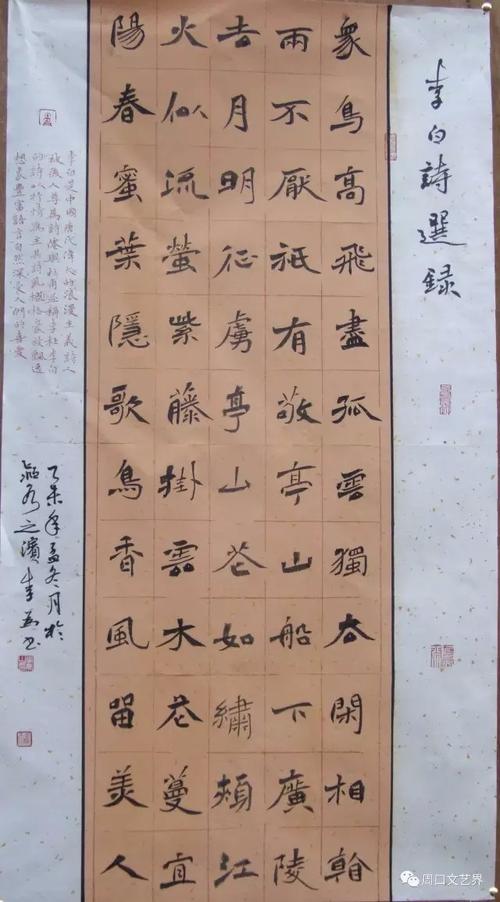 李白詩選録
衆鳥高飛盡孤雲獨去閑相翰
兩不厭祇有敬亭山船下廣陵
去月明征虜亭山花如繡頰江
火似流螢紫藤掛雲木花蔓宜
陽春蜜葉隱歌鳥香風留美人
李白是中國唐代偉大的浪漫主義詩人
被後人尊爲詩僊與杜甫並稱李杜李白
的詩以抒情爲主其詩風格豪放飄逸
想象豐富語言自然深受人們的喜愛
乙未年孟冬月於
之濱李書
周口文艺界